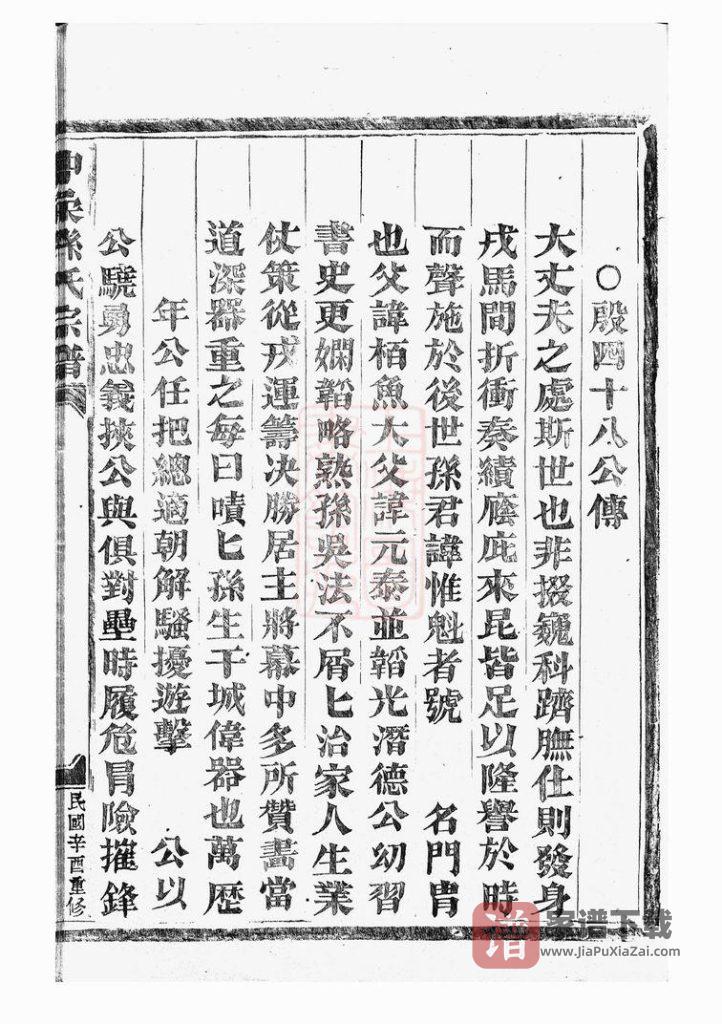 ○殷四十八公傳
大丈夫之處斯世也非掇巍科躋膴仕則發身
戎馬間折衝奏績廕庇來昆皆足以隆譽於時
而聲施於後世孫君諱惟魁者號 名門胄
也父諱栢魚大父諱元泰並韜光潛德公幼習
書史更嫻韜略熟孫吳法不屑匕治家人生業
仗策從戎運籌决勝居主將幕中多所贊畫當
道深器重之每曰嘖匕孫生干城偉器也萬歷
年公任把總適朝解騷擾遊擊 公以
公驍勇忠義挾公與俱對壘時履危冒險摧鋒
孫氏宗譜
民國辛酉重修
譜
家谱下载
www.JiaPuXiaZai.com